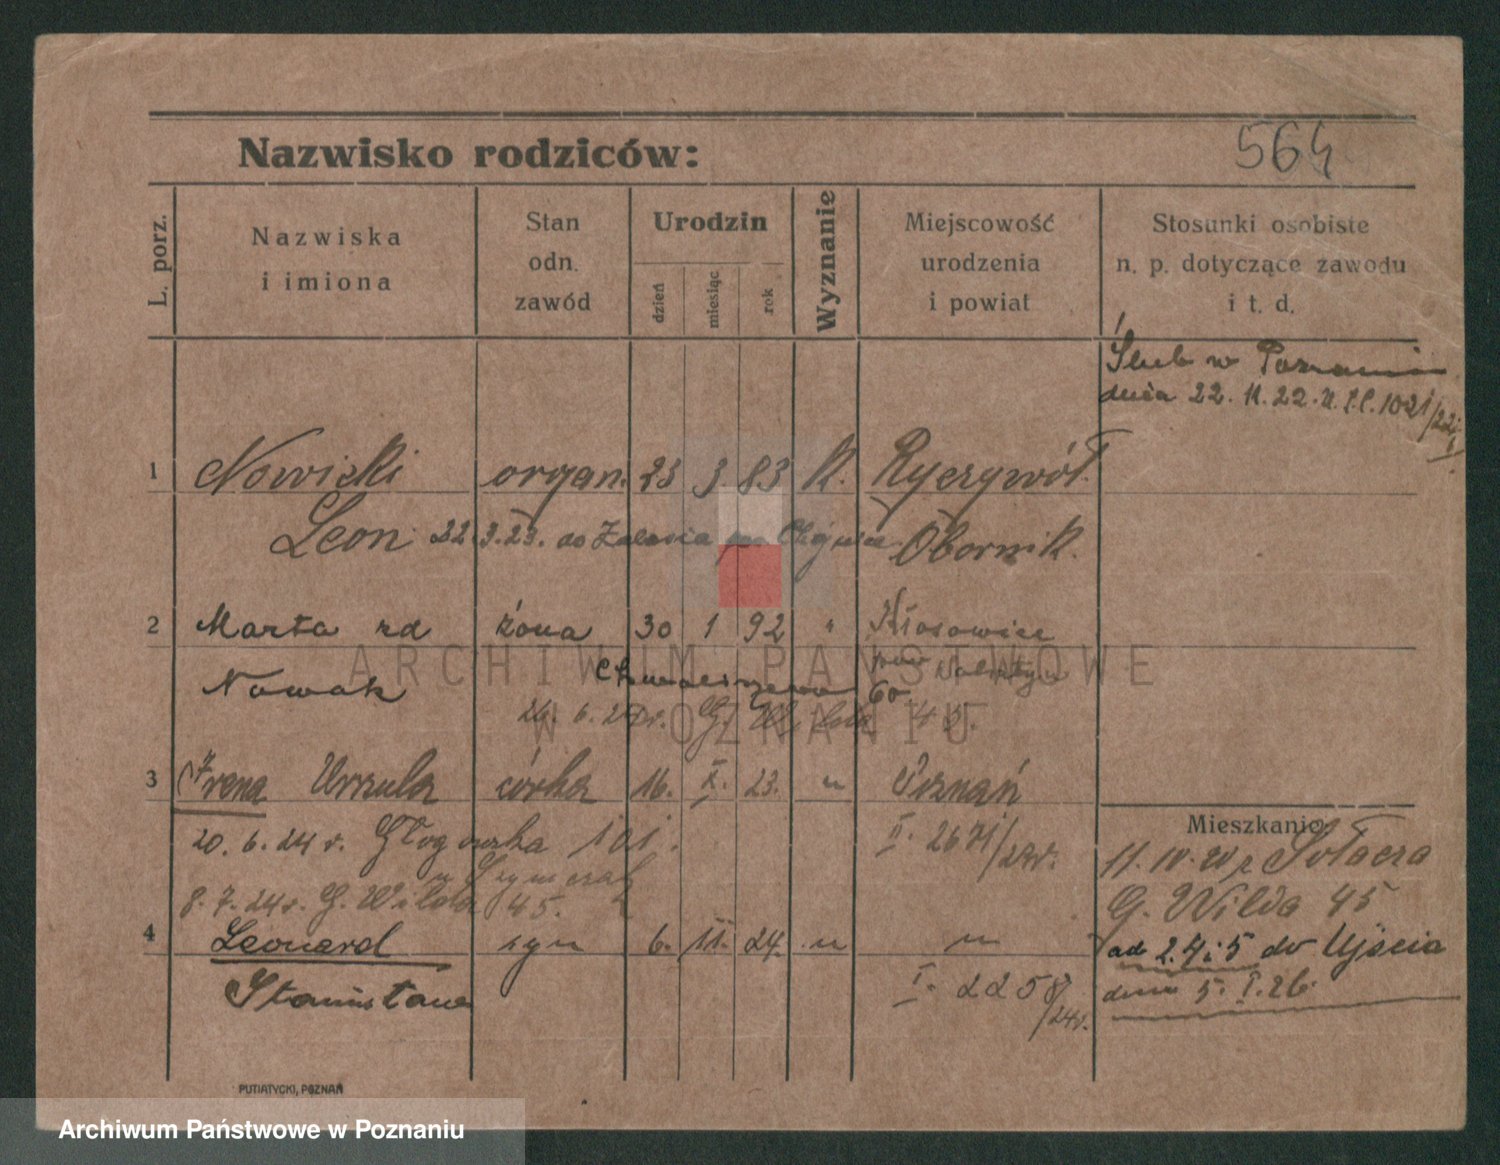 564
Nazwisko rodziców:
L. porz.
Nazwiska
i imiona
Stan
odn.
zawód
Urodzin
dzień
miesiąc
rok
Wyznanie
Miejscowość
urodzenia
i powiat
Stosunki osobiste
n. p. dotyczące zawodu
i t. d.
Ślub w Poznaniu
dnia 22. 11. 22. 1021/22
1 Nowicki organ. 23 3 83 K. Ryczywół
Leon 22.3.23. do Obornik.
2 Marta zd żona 30 1 92 " Kłosowice
Nowak
26. 6. G. Wilda 45.
3 Irena Urszula córka 16. X. 23. " Poznań
20. 6. 24 r. Głogowska 101. II. 2671/23r.
u Szymczak
8. 7. 24 r. G. Wilda 45.
Mieszkanie:
11. IV. Sołacza
G. Wilda 45
od 2.4.25 do Ujścia
dnia 5. I. 26.
4 Leonard syn 6. 11. 24. " "
Stanisław I. 2258/24r.
PUTIATYCKI, POZNAŃ
ARCHIWUM PAŃSTWOWE
W POZNANIU
Archiwum Państwowe w Poznaniu